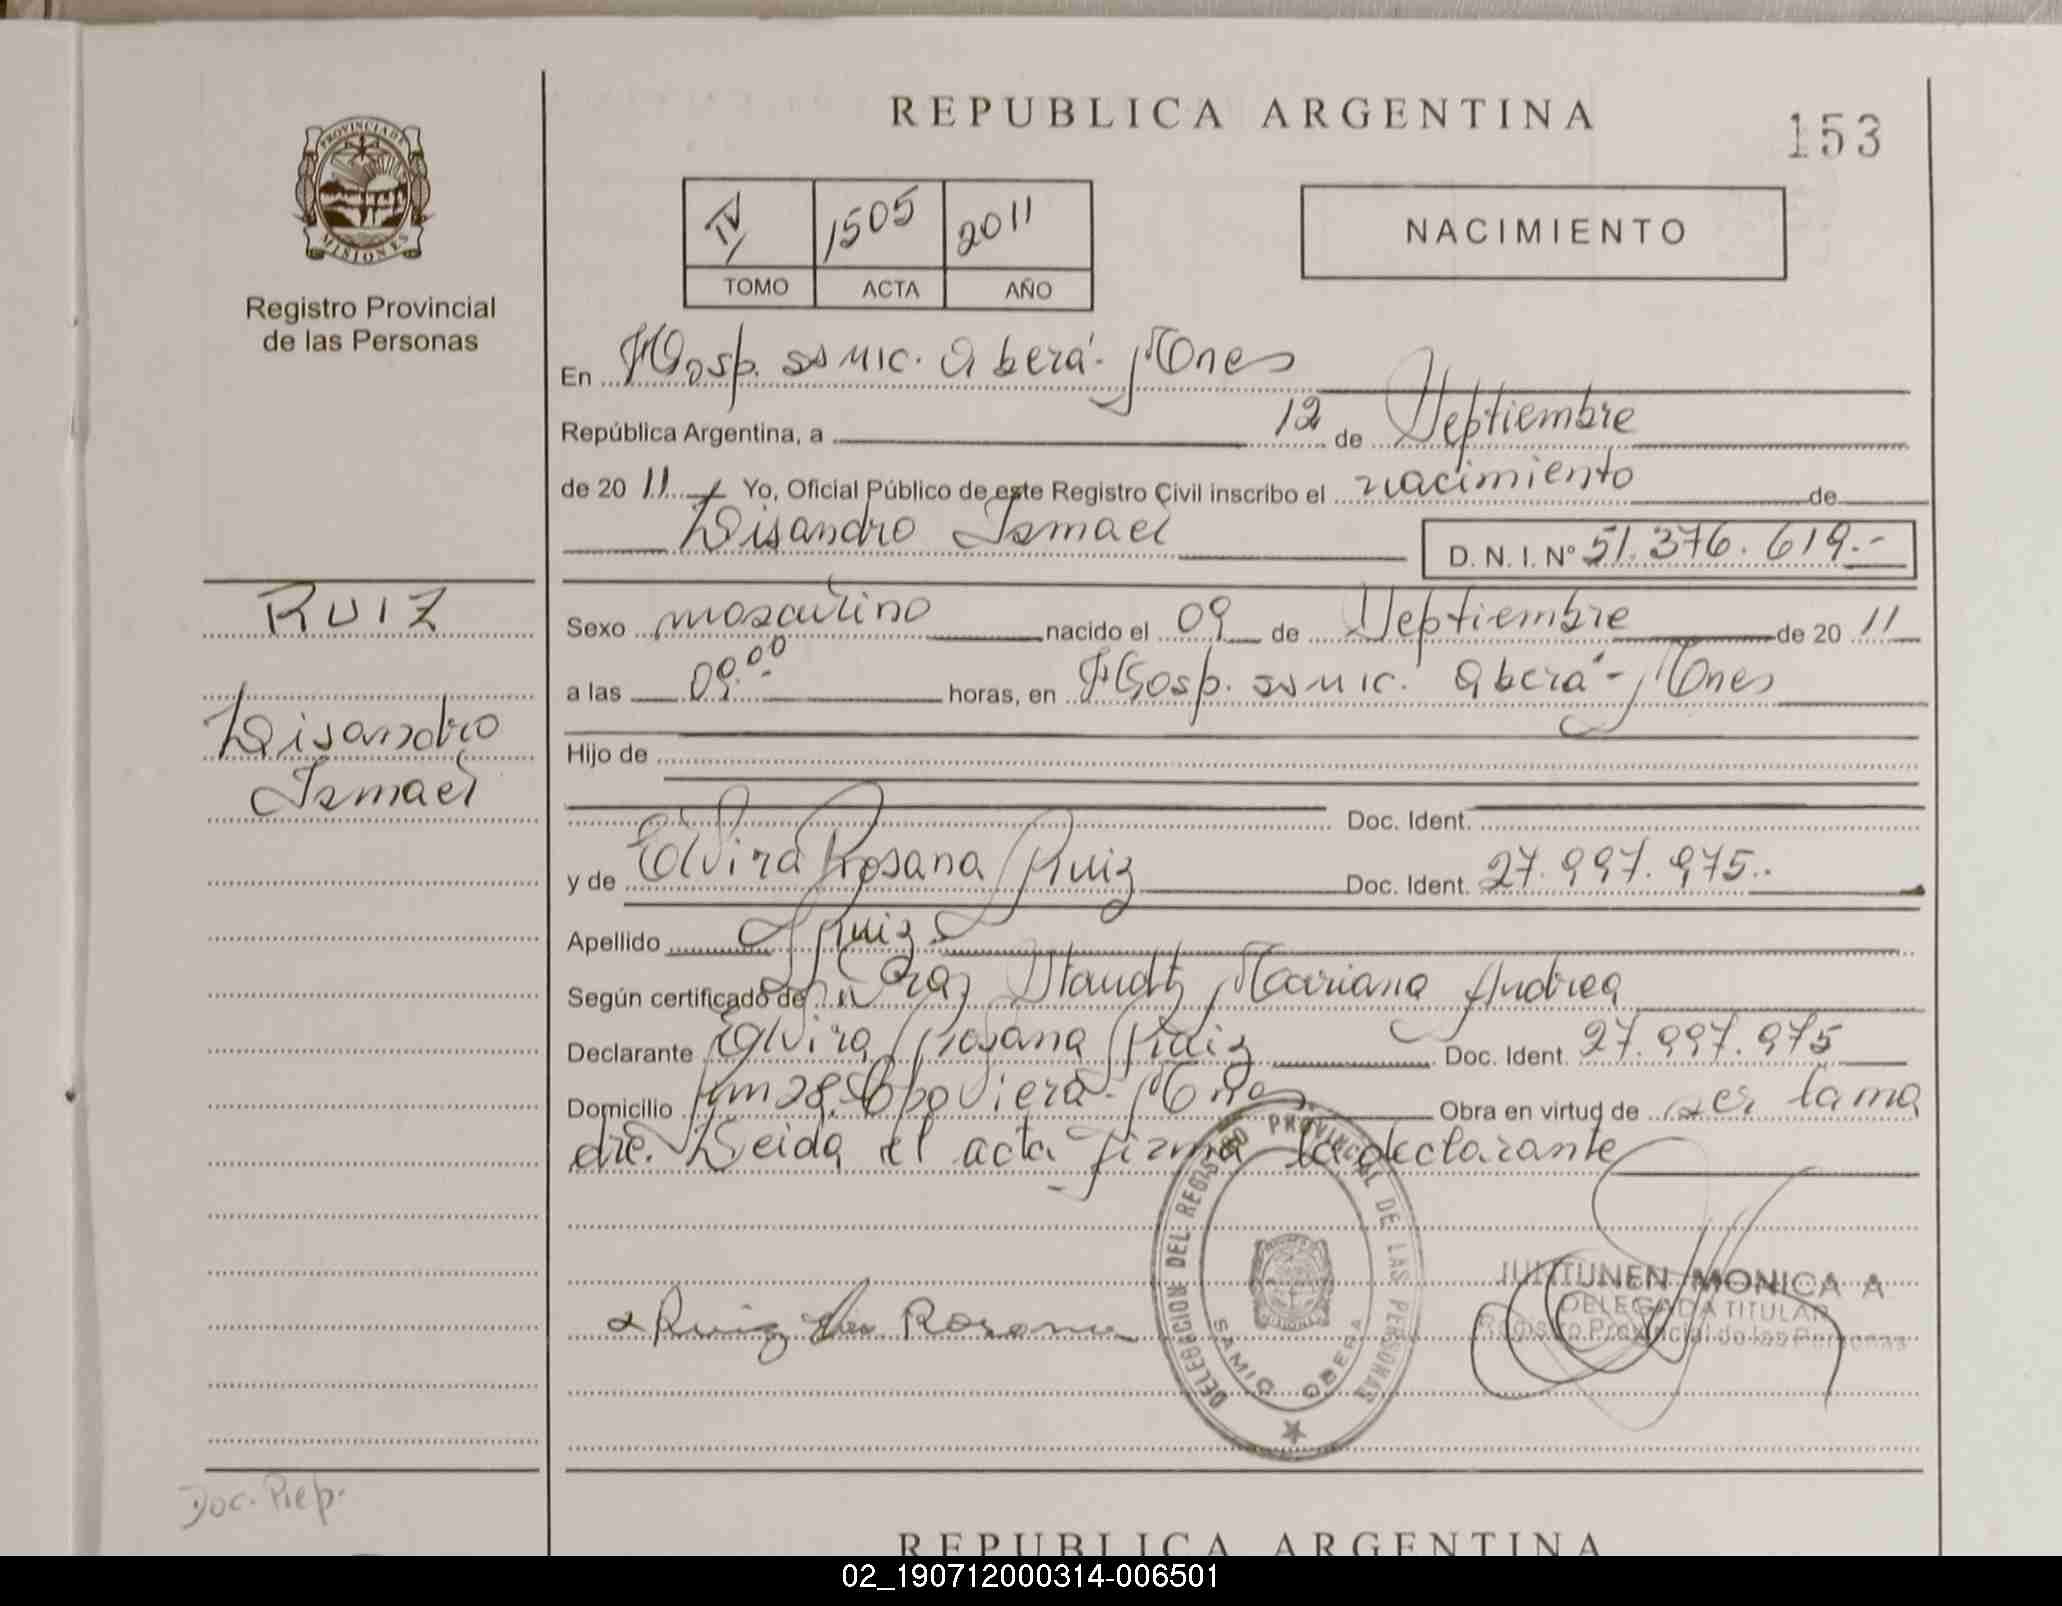 REPUBLICA ARGENTINA
153
PROVINCIA DE MISIONES
Registro Provincial
de las Personas
IV 1505 2011
TOMO ACTA AÑO
NACIMIENTO
En Hosp. ss mic. Oberá - Mnes
República Argentina, a 12 de Septiembre
de 20 11 Yo, Oficial Público de este Registro Civil inscribo el nacimiento de
Lisandro Ismael D. N. I. Nº 51.376.619.-
RUIZ
Lisandro
Ismael
Sexo masculino nacido el 09 de Septiembre de 20 11
a las 09:00 horas, en Hosp. ss mic. Oberá - Mnes
Hijo de
Doc. Ident.
y de Elvira Rosana Ruiz Doc. Ident. 27.997.975.
Apellido Ruiz
Según certificado de Staudt, Mariana Andrea
Declarante Elvira Rosana Ruiz Doc. Ident. 27.997.975
Domicilio Km 28. Mnes Obra en virtud de ser la ma
dre. Leida el acta firma la declarante
DELEGACION DEL REGISTRO PROVINCIAL DE LAS PERSONAS
SAMIC OBERA
JUNTUNEN MONICA A
DELEGADA TITULAR
Registro Provincial de las Personas
Ruiz Rosana
Doc. Prep.
REPUBLICA ARGENTINA
02_190712000314-006501